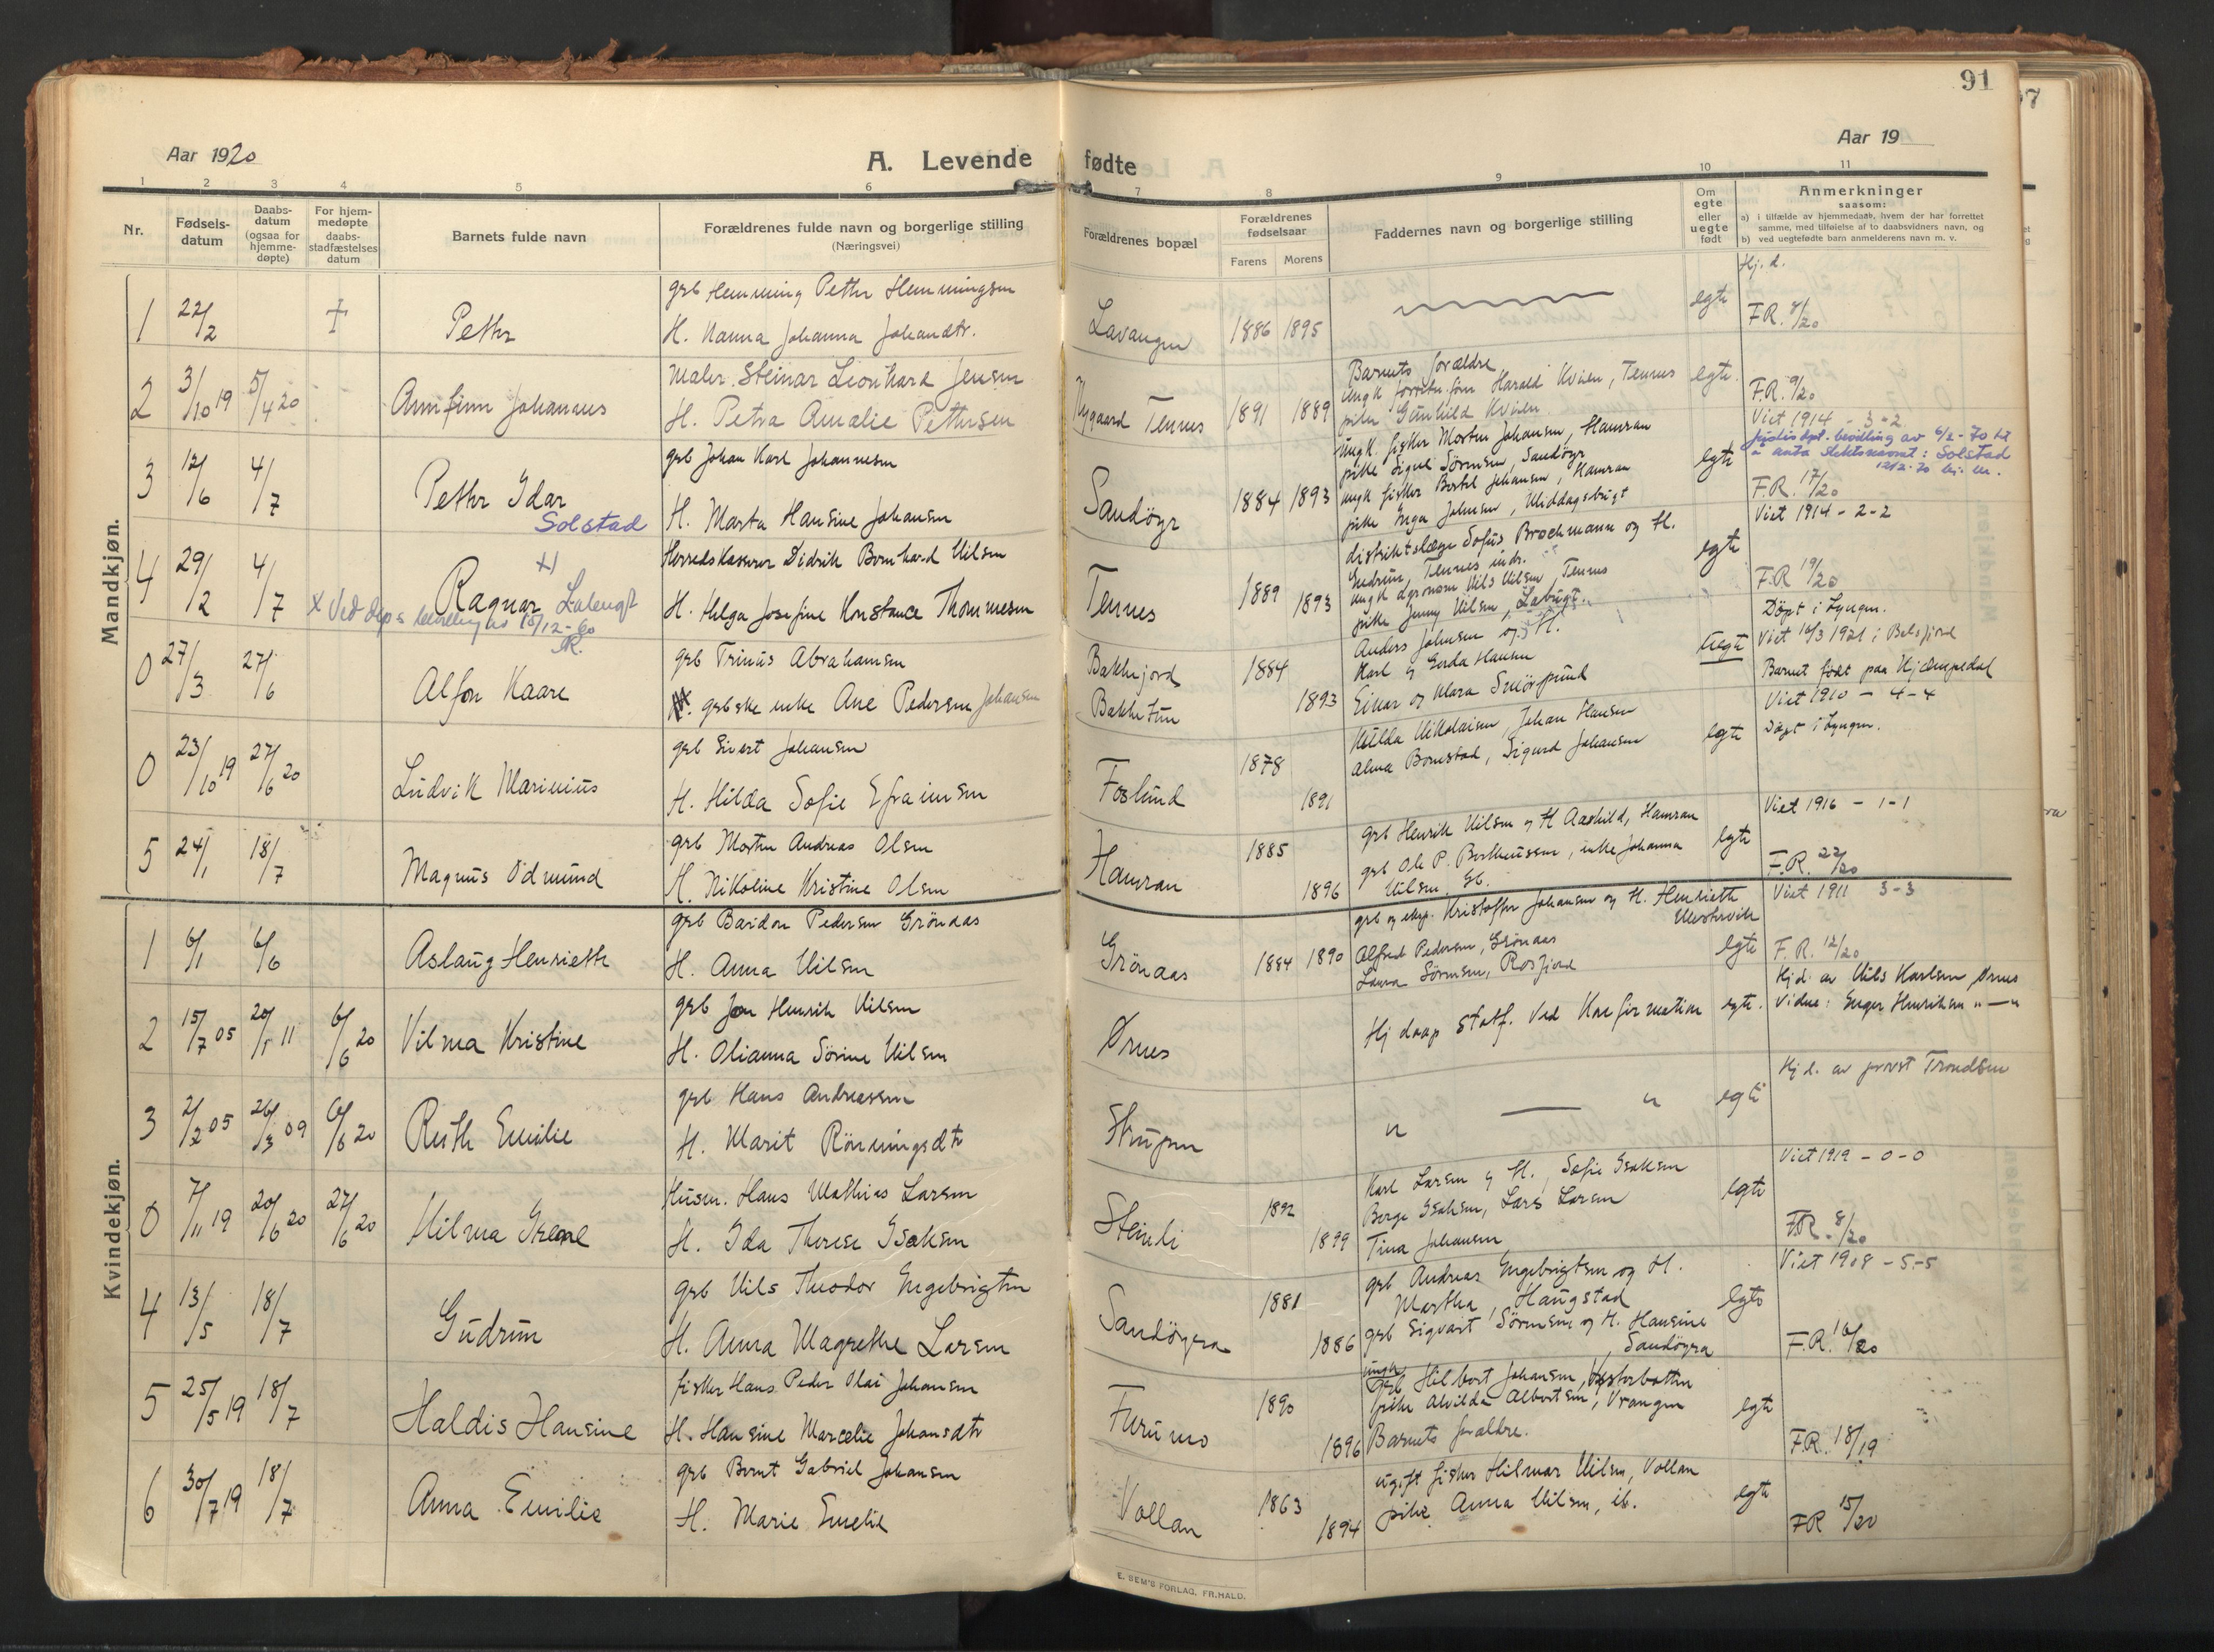 91
Aar 1920
A. Levende fødte
Aar 19
1 2 3 4 5 6 7 8 9 10 11
Nr.
Fødsels-datum
Daabs-datum (ogsaa for hjemme-døpte)
For hjem-medøpte daabs-stadfæstelses datum
Barnets fulde navn
Forældrenes fulde navn og borgerlige stilling
(Næringsvei)
Forældrenes bopæl
Forældrenes fødselsaar
Farens Morens
Faddernes navn og borgerlige stilling
Om egte eller uegte født
Anmerkninger
saasom:
a) i tilfælde av hjemmedaab, hvem der har forrettet samme, med tilføielse af to daabsvidners navn, og
b) ved uegtefødte barn anmelderens navn m. v.
Mandkjøn.
1 22/2 + Pether
grb Hemming Pether Hemmingsen
H. Nanna Johanna Johandtr.
Lavangen 1886 1895 egte
Hj. d.
F.R. /20
2 3/10 19 5/4 20 Armfinn Johannes
Maler Steinar Leonhard Jensen
H. Petra Amalie Pettersen
Nygaard Tennes 1891 1889
Barnets forældre
Harald Kvien, Tennes
pike Gunhild Kvien
egte
F.R. 9/20
Viet 1914 - 3-2
3 12/6 4/7 Pether Idar
Solstad
grb Johan Karl Johannesen
H. Marta Hansine Johansen
Sandöyr 1884 1893
ungk. fisker Morten Johansen, Hamran
pike Signe Sörensen, Sandöyr
ungk fisker Bertel Johansen, Hamran
pike Inga Johnsen, Middagsbugt
egte
bevilling av 6/2-70 til
å anta slektsnavnet: Solstad
F.R. 17/20
Viet 1914 - 2-2
4 29/2 4/7 Ragnar
Herredskasserer Didrik Bernhard Nilsen
H. Helga Josefine Konstance Thommesen
Tennes 1889 1893
distriktslæge Sofus Brochmann og H.
Gudrun, Tennes
ungk agronom Nils Nilsen, Tennes
pike Jenny Nilsen, Labugt.
egte
F.R 19/20
Döpt i Lyngen.
0 27/3 27/6 Alfon Kaare
grb Trinus Abrahamsen
grbske enke Ane Pedersen Johansen
Bakkejord
Bakketun
1884 1893
Anders Johnsen og H.
Karl & Gerda Hansen
Einar og Klara
uegte
Viet 16/3 1921 i Balsfjord
Barnet födt paa Kjempedal
0 23/10 19 27/6 20 Ludvik Marinius
grb Sivert Johansen
H. Hilda Sofie Efraimsen
Foslund 1878 1891
Hulda Nikolaisen, Johan Hansen
Alma Bomstad, Sigurd Johansen
egte
Viet 1910 - 4-4
Döpt i Lyngen.
5 24/1 18/7 Magnus Odmund
grb Morten Andreas Olsen
H. Nikoline Kristine Olsen
Hamran 1885 1896
grb Henrik Nilsen og H Aashild, Hamran
grb Ole P. Bertheussen, enke Johanna
Nilsen
egte
Viet 1916 - 1-1
F.R. 22/20
Kvindekjøn.
1 6/1 6/6 Aslaug Henriethe
grb Bardon Pedersen Grönaas
H. Anna Nilsen
Grönaas 1884 1890
Kristoffer Johansen og H. Henriette
Mestervik
Alfred Pedersen, Grönaas
Laura Sörensen, Rosfjord
egte
Viet 1911 3-3
F.R. 12/20
2 15/7 05 20/5 11 6/6 20 Vilma Kristine
grb Jon Henrik Nilsen
H. Olianna Sörine Nilsen
Ørnes
Hj daap statf. ved Konfirmation egte.
Hj.d. av Nils Karlsen Ørnes
Vidne: Inger Henriksen " — "
3 2/2 05 26/3 09 6/6 20 Ruth Emilie
grb Hans Andreassen
H. Marit Rönningsdtr
Strupen
" — " egte
Hj d. av provst Trondsen
0 7/11 19 20/6 20 27/6 20 Hilma Irene
Husm. Hans Mathias Larsen
H. Ida Therese Isaksen
Steinli 1892 1899
Karl Larsen & H., Sofie Isaksen
Borge Isaksen, Lars Larsen
Tina Johansen
egte
Viet 1919 - 0-0
F.R. 8/20
4 13/5 18/7 Gudrun
grb Nils Theodor Engebrigtsen
H. Anna Magrethe Larsen
Sandöyra 1881 1886
grb Andreas Engebrigtsen og H.
Martha, Haugstad
grb Sigvart Sörensen og H. Hansine
Sandöyra
egte
Viet 1908 - 5-5
F.R. 16/20
5 25/5 19 18/7 Haldis Hansine
fisker Hans Peder Olai Johansen
H. Hansine Marcelie Johansdtr
Furumo 1890 1896
ungk Hilbert Johansen, Vesterbotten
pike Alvilda Albertsen, Vrangen
Barnets foraldre.
egte
F.R. 18/19
6 30/7 19 18/7 Anna Emilie
grb Bernt Gabriel Johansen
H. Marie Emelie
Vollan 1863 1894
ugift fisker Hilmar Nilsen, Vollan
pike Anna Nilsen, ib.
egte
FR 15/20
E. SEM'S FORLAG, FR.HALD.